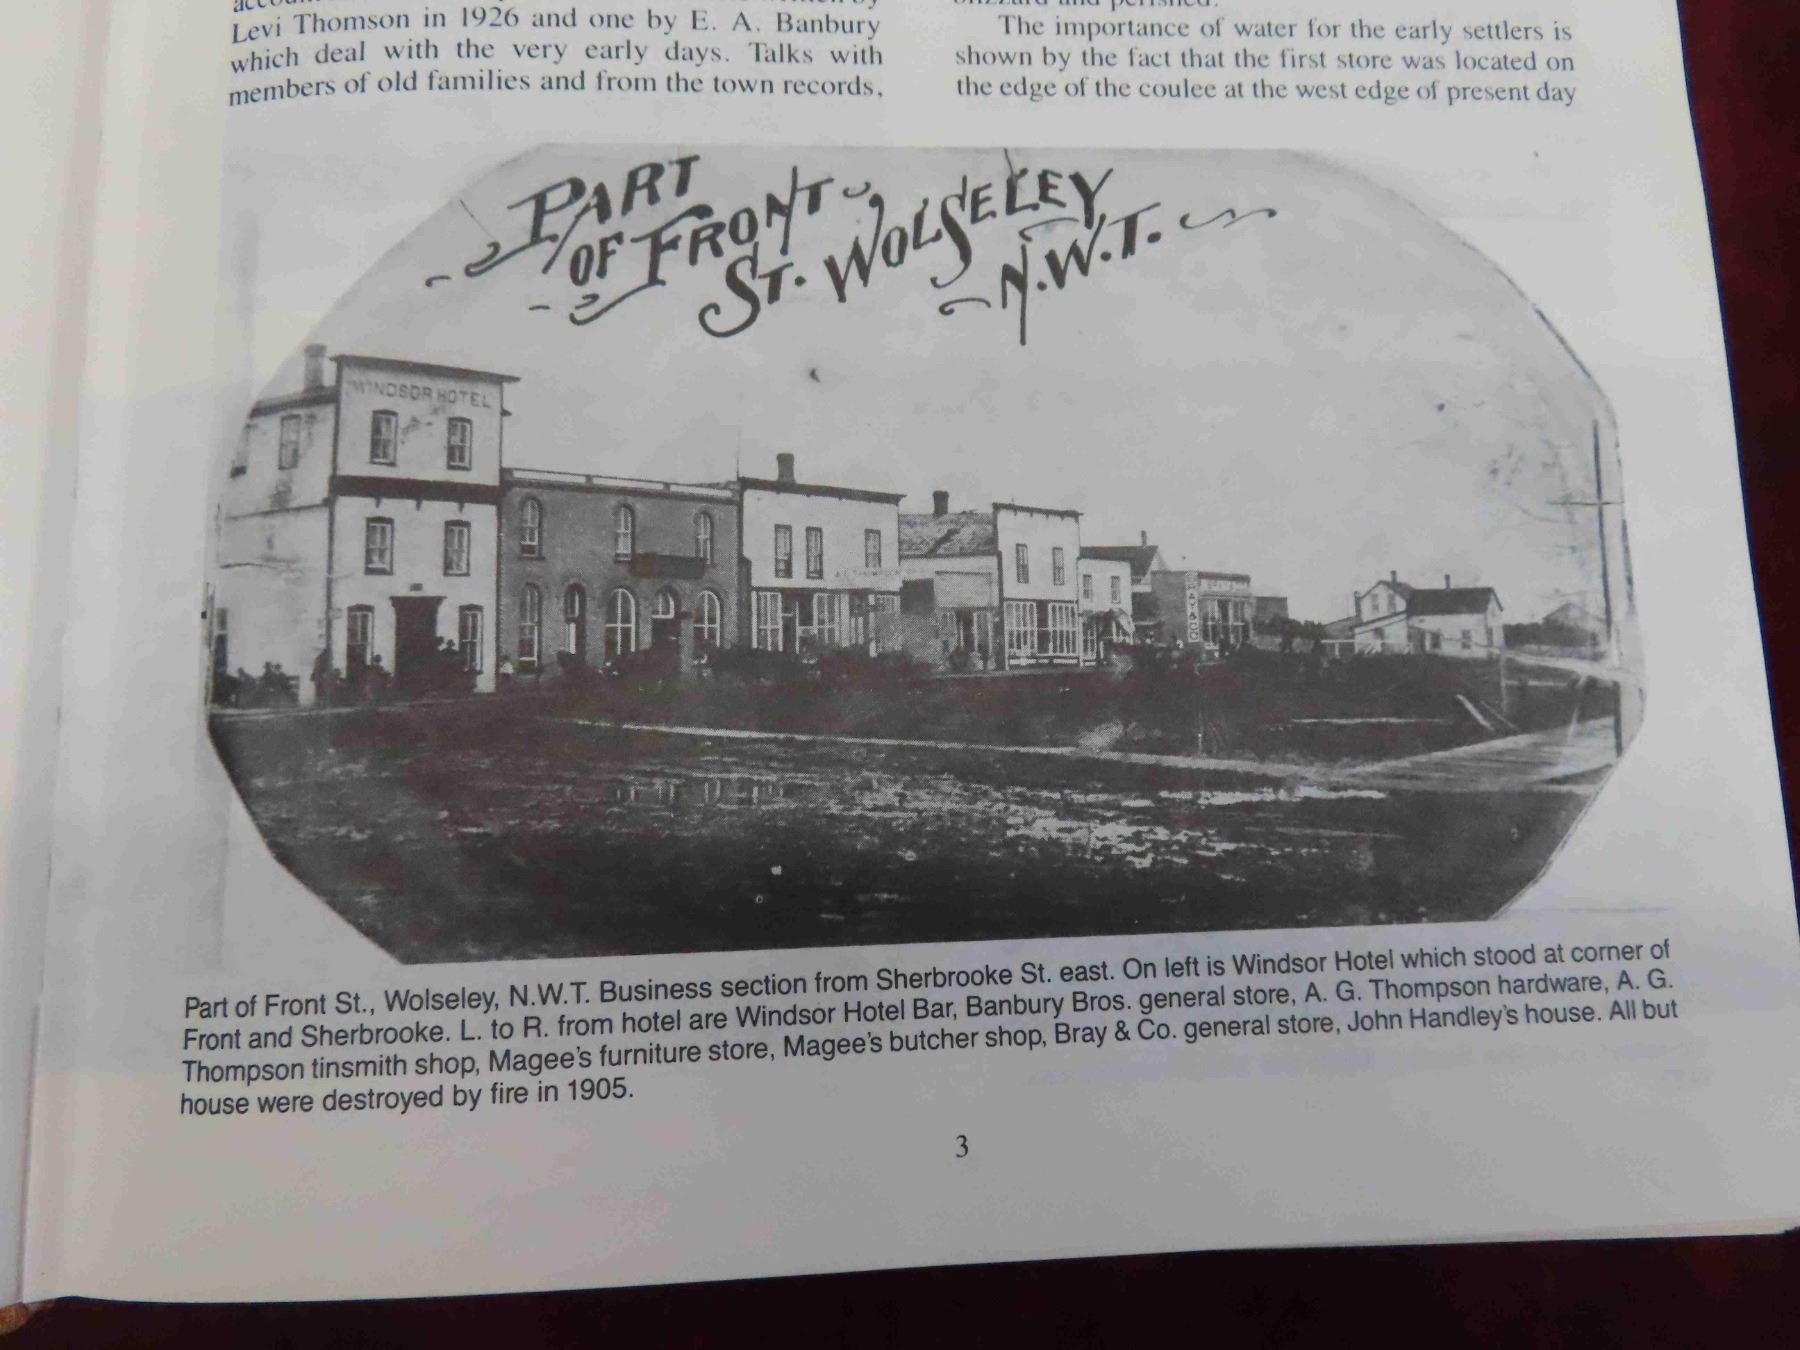 Levi Thomson in 1926 and one by E. A. Banbury
which deal with the very early days. Talks with
members of old families and from the town records,
blizzard and perished.
The importance of water for the early settlers is
shown by the fact that the first store was located on
the edge of the coulee at the west edge of present day
PART
OF FRONT
ST. WOLSELEY
N.W.T.
WINDSOR HOTEL
Part of Front St., Wolseley, N.W.T. Business section from Sherbrooke St. east. On left is Windsor Hotel which stood at corner of
Front and Sherbrooke. L. to R. from hotel are Windsor Hotel Bar, Banbury Bros. general store, A. G. Thompson hardware, A. G.
Thompson tinsmith shop, Magee's furniture store, Magee's butcher shop, Bray & Co. general store, John Handley's house. All but
house were destroyed by fire in 1905.
3